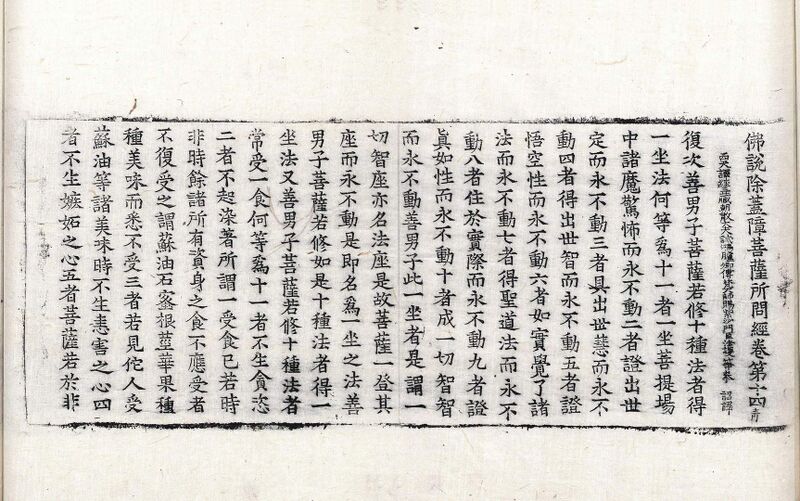 佛說除蓋障菩薩所問經卷第十四 青
西天譯經三藏朝散大夫試鴻臚少卿傳梵大師賜紫沙門臣法護等奉 詔譯
復次善男子菩薩若修十種法者得
一坐法何等爲十一者一坐菩提場
中諸魔驚怖而永不動二者證出世
定而永不動三者具出世慧而永不
動四者得出世智而永不動五者證
悟空性而永不動六者如實覺了諸
法而永不動七者得聖道法而永不
動八者住於實際而永不動九者證
眞如性而永不動十者成一切智智
而永不動善男子此一坐者是謂一
切智座亦名法座是故菩薩一登其
座而永不動是即名爲一坐之法善
男子菩薩若修如是十種法者得一
坐法又善男子菩薩若修十種法者
常受一食何等爲十一者不生貪恣
二者不起染著所謂一受食已若時
非時餘諸所有資身之食不應受者
不復受之謂蘇油石蜜根莖華果種
種美味而悉不受三者若見佗人受
蘇油等諸美味時不生恚害之心四
者不生嫉妬之心五者菩薩若於非